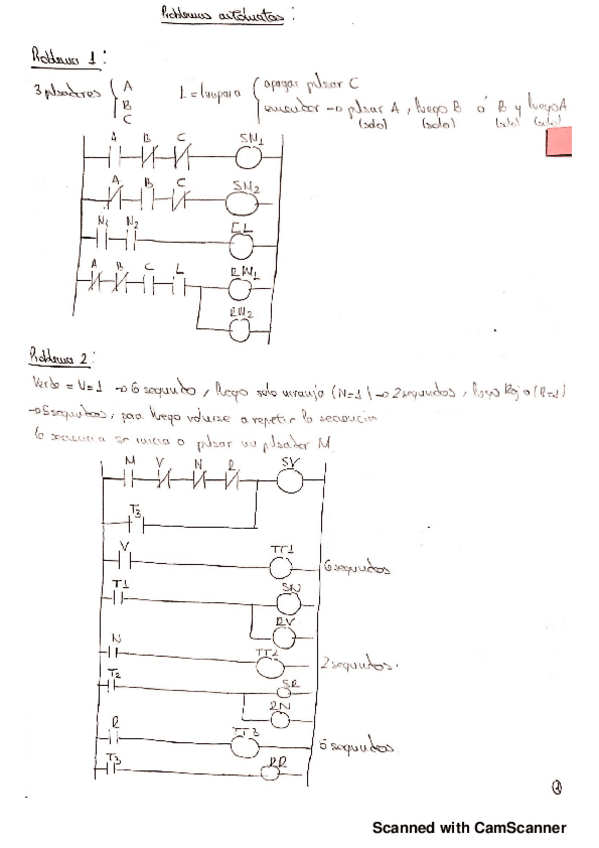 Problemas autómatas:
Problema 1:
3 pulsadores { A B C
L = lámpara { apagar pulsar C
encender → pulsar A, luego B ó B y luego A
(solo) (solo) (solo) (solo)
A B C SM1
A B C SM2
M1 M2 CL
A B C L RM1
RM2
Problema 2:
Verde = V=1 → 6 segundo, luego solo naranja (N=1) → 2 segundos, luego Rojo (R=1)
→ 5 segundos, para luego volverse a repetir la secuencia
la secuencia se inicia a pulsar un pulsador M.
M V N R SV
T3
V TT1 6 segundos
T1 SN
RV
N TT2 2 segundos.
T2 SR
RN
R TT3 5 segundos
T3 RR
Scanned with CamScanner